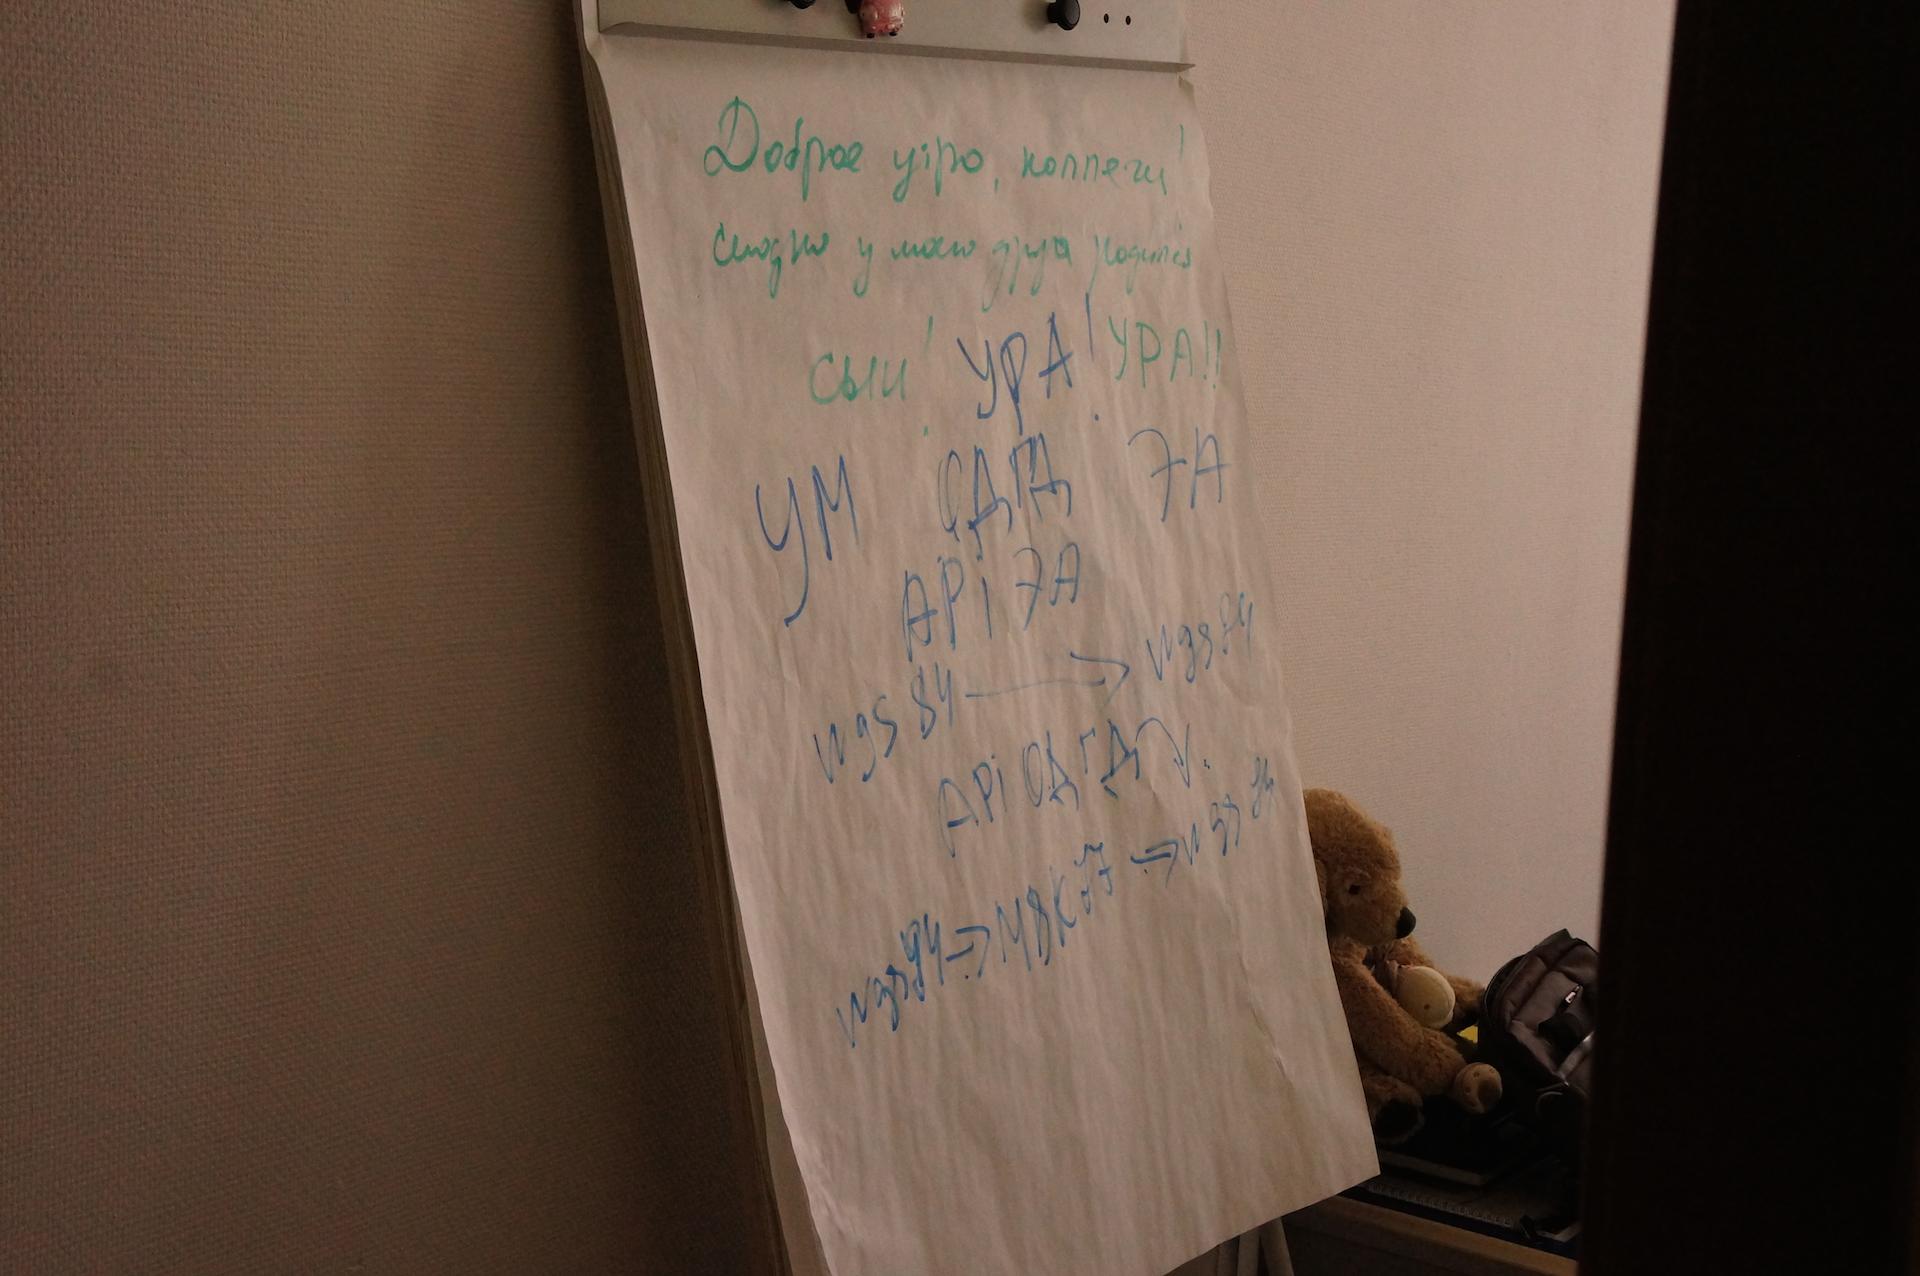 Доброе утро, коллеги!
Сегодня у моего друга родился
сын! УРА! УРА!!
УМ ОДПД ЭА
APi ЭА
wgs84 → wgs84
APi ОДГД
wgs84 → МСК77 → wgs84